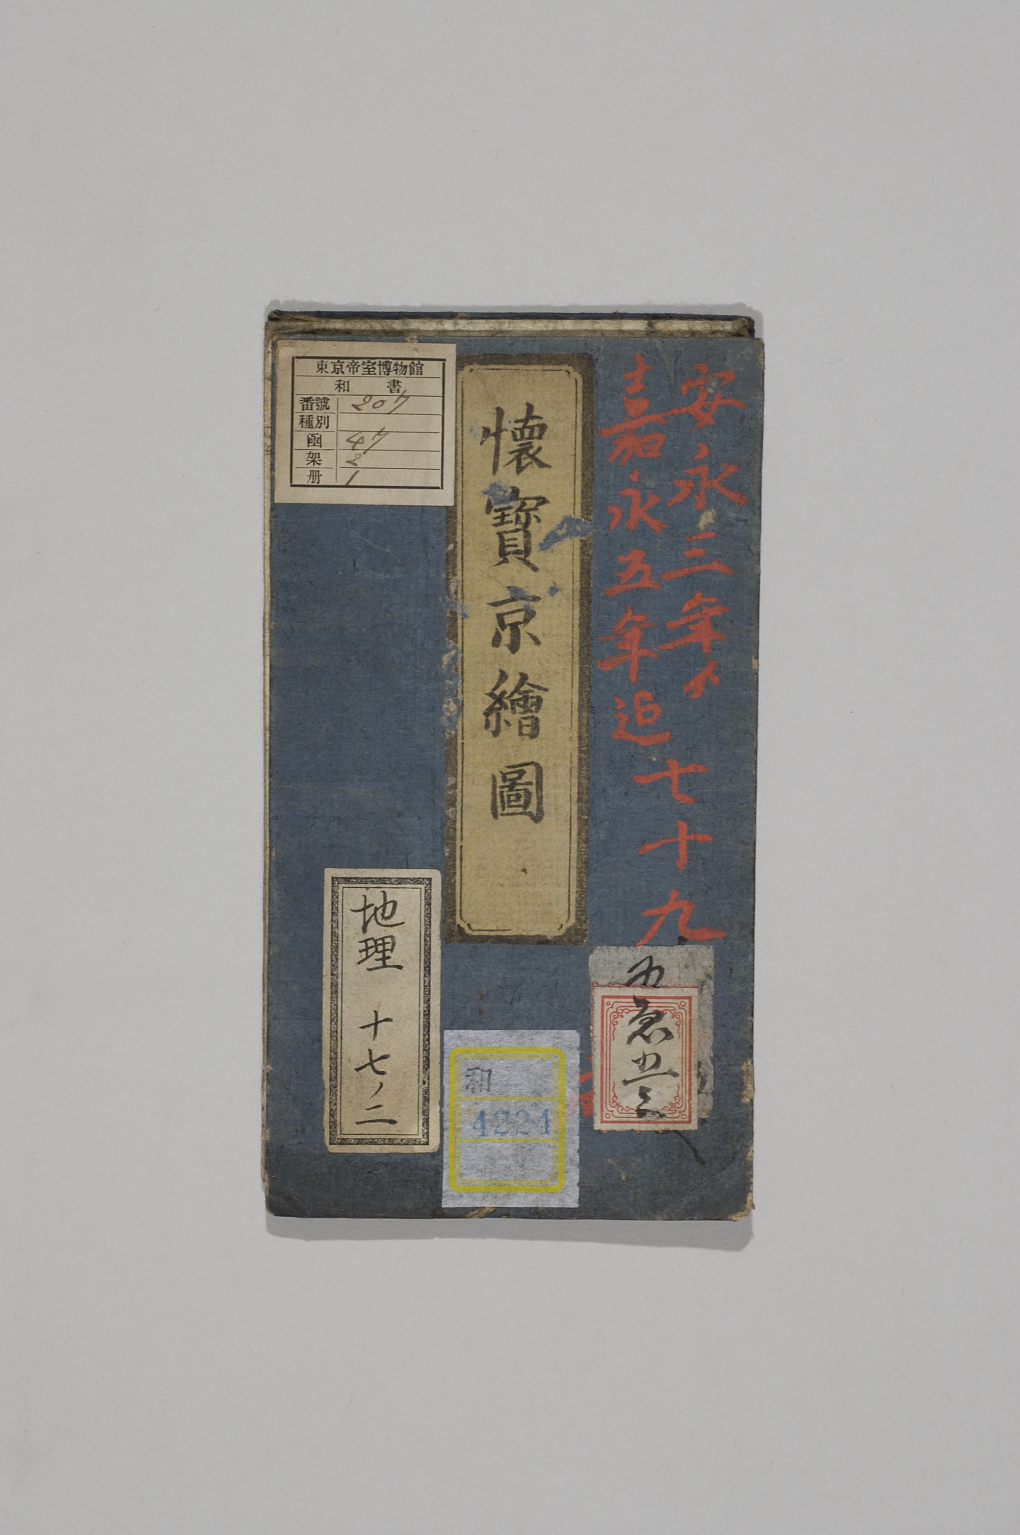 安永三年ヨリ
嘉永五年迠
七十九
懷寶京繪圖
東京帝室博物館
和書
番號 207
種別
函 47
架 2
册 1
地理 十七ノ二
和
4824